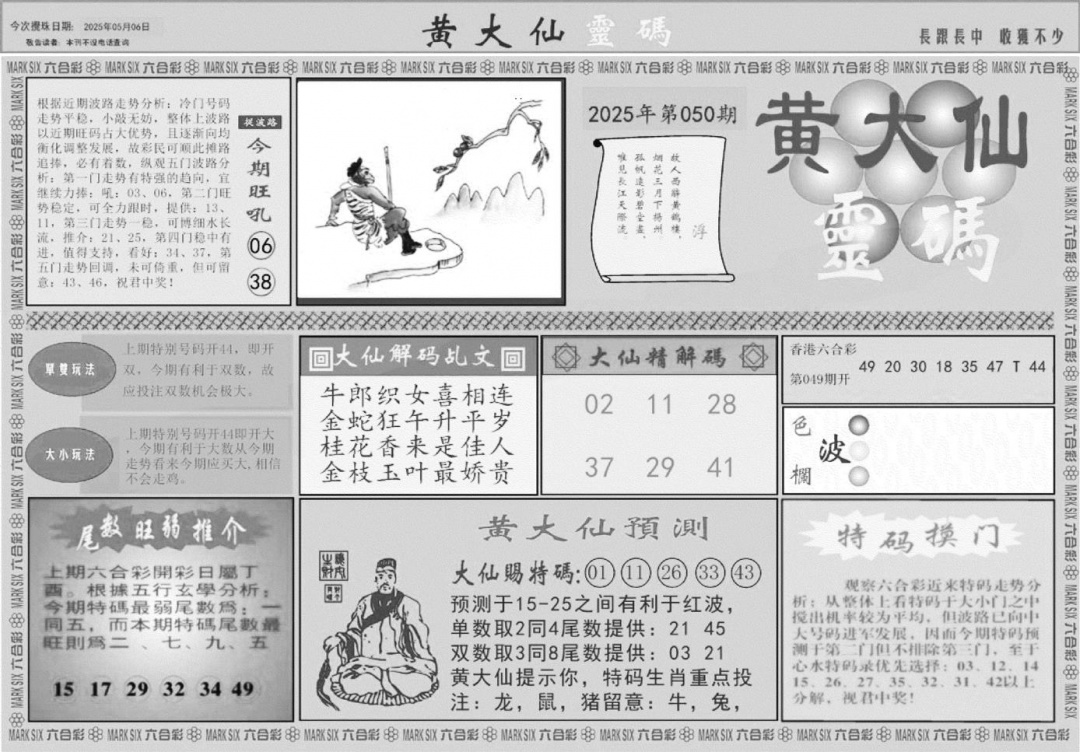 今次攪珠日期: 2025年05月06日
敬告读者: 本刊不设电话查询
黄大仙 靈碼
長跟長中 收獲不少
MARK SIX 六合彩
根据近期波路走势分析; 冷门号码
走势平稳, 小敲无妨, 整体上波路
以近期旺码占大优势, 且逐渐向均
衡化调整发展, 故彩民可顺此摊路
追捧, 必有着数, 纵观五门波路分
析: 第一门走势有特强的趋向, 宜
继续力捧; 吼: 03、06, 第二门旺
势稳定, 可全力跟时, 提供: 13、
11, 第三门走势一稳, 可博细水长
流, 推介: 21、25, 第四门稳中有
进, 值得支持, 看好: 34、37, 第
五门走势回调, 未可倚重, 但可留
意: 43、46, 祝君中奖!
捉波路
今期旺吼
06
38
2025年第050期
故人西辞黄鹤楼,
烟花三月下扬州,
孤帆远影碧空尽,
唯见长江天际流,
浮
黄大仙
靈碼
單雙玩法
上期特别号码开44, 即开
双, 今期有利于双数, 故
应投注双数机会极大。
大小玩法
上期特别号码开44即开大
, 今期有利于大数从今期
走势看来今期应买大, 相信
不会走鸡。
大仙解码乩文
牛郎织女喜相连
金蛇狂午升平岁
桂花香来是佳人
金枝玉叶最娇贵
大仙精解碼
02 11 28
37 29 41
香港六合彩
第049期开
49 20 30 18 35 47 T 44
色
波
欄
尾数旺弱推介
上期六合彩開彩日屬丁
酉。根據五行玄學分析;
今期特碼最弱尾數為: 一
同五, 而本期特碼尾數最
旺則為二 、七、九、五
15 17 29 32 34 49
黄大仙預測
大仙賜特碼: 01 11 26 33 43
预测于15-25之间有利于红波,
单数取2同4尾数提供: 21 45
双数取3同8尾数提供: 03 21
黄大仙提示你, 特码生肖重点投
注: 龙, 鼠, 猪留意: 牛, 兔,
特码摸门
观察六合彩近来特码走势分
析; 从整体上看特码于大小门之中
搅出机率较为平均, 但波路已向中
大号码进军发展, 因而今期特码预
测于第二门但不排除第三门, 至于
心水特码录优先选择: 03、12、14
15、26、27、35、32、31、42以上
分解, 祝君中奖!